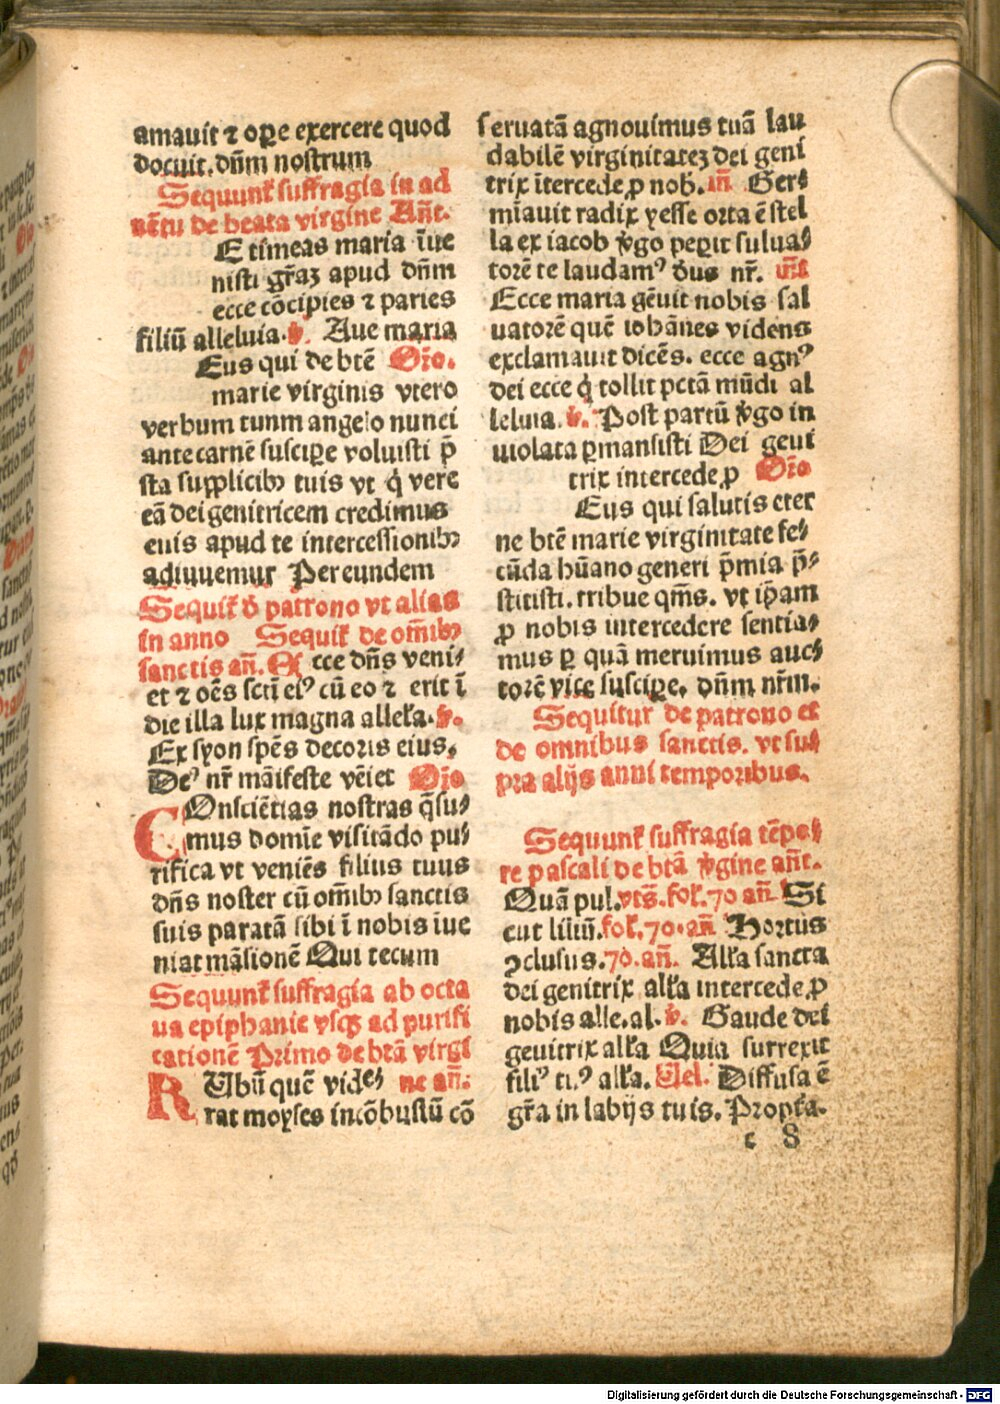 amauit ⁊ oꝑe exercere quod
docuit. dñm nostrum
Sequunt᷑ suffragia in ad
uētu de beata virgine Añt.
E timeas maria īue
nisti gr̄aꝫ apud dn̄m
ecce cōcipies ⁊ paries
filiū alleluia. v̄. Aue maria
Eus qui de btē Or̄o.
marie virginis vtero
verbum tuum angelo nunci
ante carnē suscipe voluisti p̄
sta supplicibꝫ tuis vt q̇ vere
eā dei genitricem credimus
euis apud te intercessionibꝫ
adiuuemur Per eundem
Sequit᷑ d̄ patrono vt alias
in anno Sequit᷑ de om̄ibꝫ
sanctis añ. E cce dn̄s veni⸗
et ⁊ oēs sctī eiꝰ cū eo ⁊ erit ī
die illa lux magna allel̄a. v̄.
Ex syon spēs decoris eius.
Deꝰ nr̄ māifeste vēiet Or̄o
COnsciētias nostras q̄su⸗
mus domīe visitādo pu⸗
rifica vt veniēs filius tuus
dn̄s noster cū om̄ibꝫ sanctis
suis paratā sibi ī nobis īue
niat māsionē Qui tecum
Sequunt᷑ suffragia ab octa
ua epiphanie vsqꝫ ad purifi
cationē Primo de btā virgi
RUbū quē vid⸗ ne añ.
rat moyses incōbustū cō
seruatā agnouimus tuā lau
dabilē virginitateꝫ dei geni
trix ītercede ꝓ nob̄. īn̄ Ger⸗
miauit radix yesse orta ē stel
la ex iacob v̇go peꝑit saluа⸗
torē te laudamꝰ d̄us nr̄. īn̄t
Ecce maria gēuit nobis sal
uatorē quē iohānes videns
exclamauit dicēs. ecce agnꝰ
dei ecce q̇ tollit pctā mūdi al
leluia. v̄. Post partū v̇go in
uiolata ꝑmansisti Dei geni
trix intercede ꝓ Or̄o
Eus qui salutis eter
ne btē marie virginitate fe⸗
cūda hūano generi p̄mia p̄⸗
stitisti. tribue qm̄s. vt ip̄am
ꝓ nobis intercedere sentia⸗
mus ꝑ quā meruimus auc⸗
torē vite suscipe. dn̄m nr̄m.
Sequitur de patrono et
de omnibus sanctis. vt su⸗
pra alijs anni temporibus.
Sequunt᷑ suffragia tēpo⸗
re pascali de btā v̇gine añt.
Quā pul. vts̄. fol̄. 70 añ Si
cut liliū. fol̄. 70. añ Hortus
ꝯclusus. 70. añ. All̄a sancta
dei genitrix all̄a intercede ꝓ
nobis alle. al. v̄. Gaude dei
genitrix all̄a Quia surrexit
filiꝰ tiꝰ all̄a. Uel. Diffusa ē
gr̄a in labijs tuis. Propt̄a.
c 8
Digitalisierung gefördert durch die Deutsche Forschungsgemeinschaft - DFG